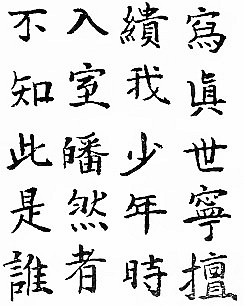 寫眞世寧擅
繢我少年時
入室皤然者
不知此是誰